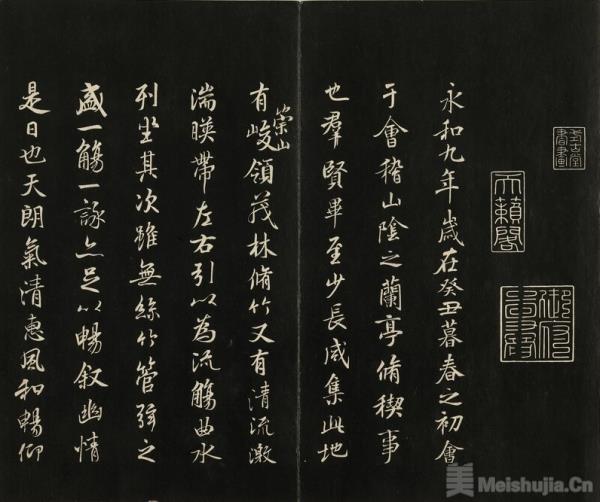 天籟閣
永和九年歲在癸丑暮春之初會
于會稽山陰之蘭亭脩稧事
也羣賢畢至少長咸集此地
有崇山峻領茂林脩竹又有清流激
湍暎帶左右引以為流觴曲水
列坐其次雖無絲竹管弦之
盛一觴一詠亦足以暢叙幽情
是日也天朗氣清惠風和暢仰
美 Meishujia.Cn